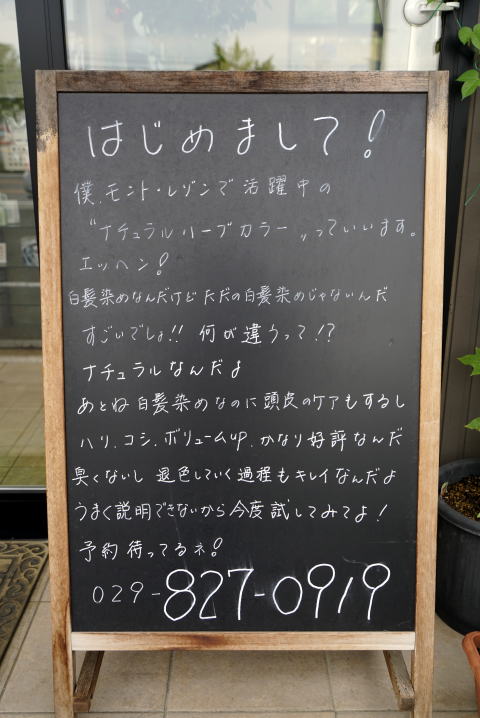 はじめまして!
僕、モント・レゾンで活躍中の
"ナチュラルハーブカラー"っていいます。
エッヘン!
白髪染めなんだけどただの白髪染めじゃないんだ
すごいでしょ!! 何が違うって!?
ナチュラルなんだよ
あとね 白髪染めなのに頭皮のケアもするし
ハリ、コシ、ボリュームup、かなり好評なんだ
臭くないし 退色していく過程もキレイなんだよ
うまく説明できないから今度試してみてよ!
予約待ってるネ!
029-827-0919